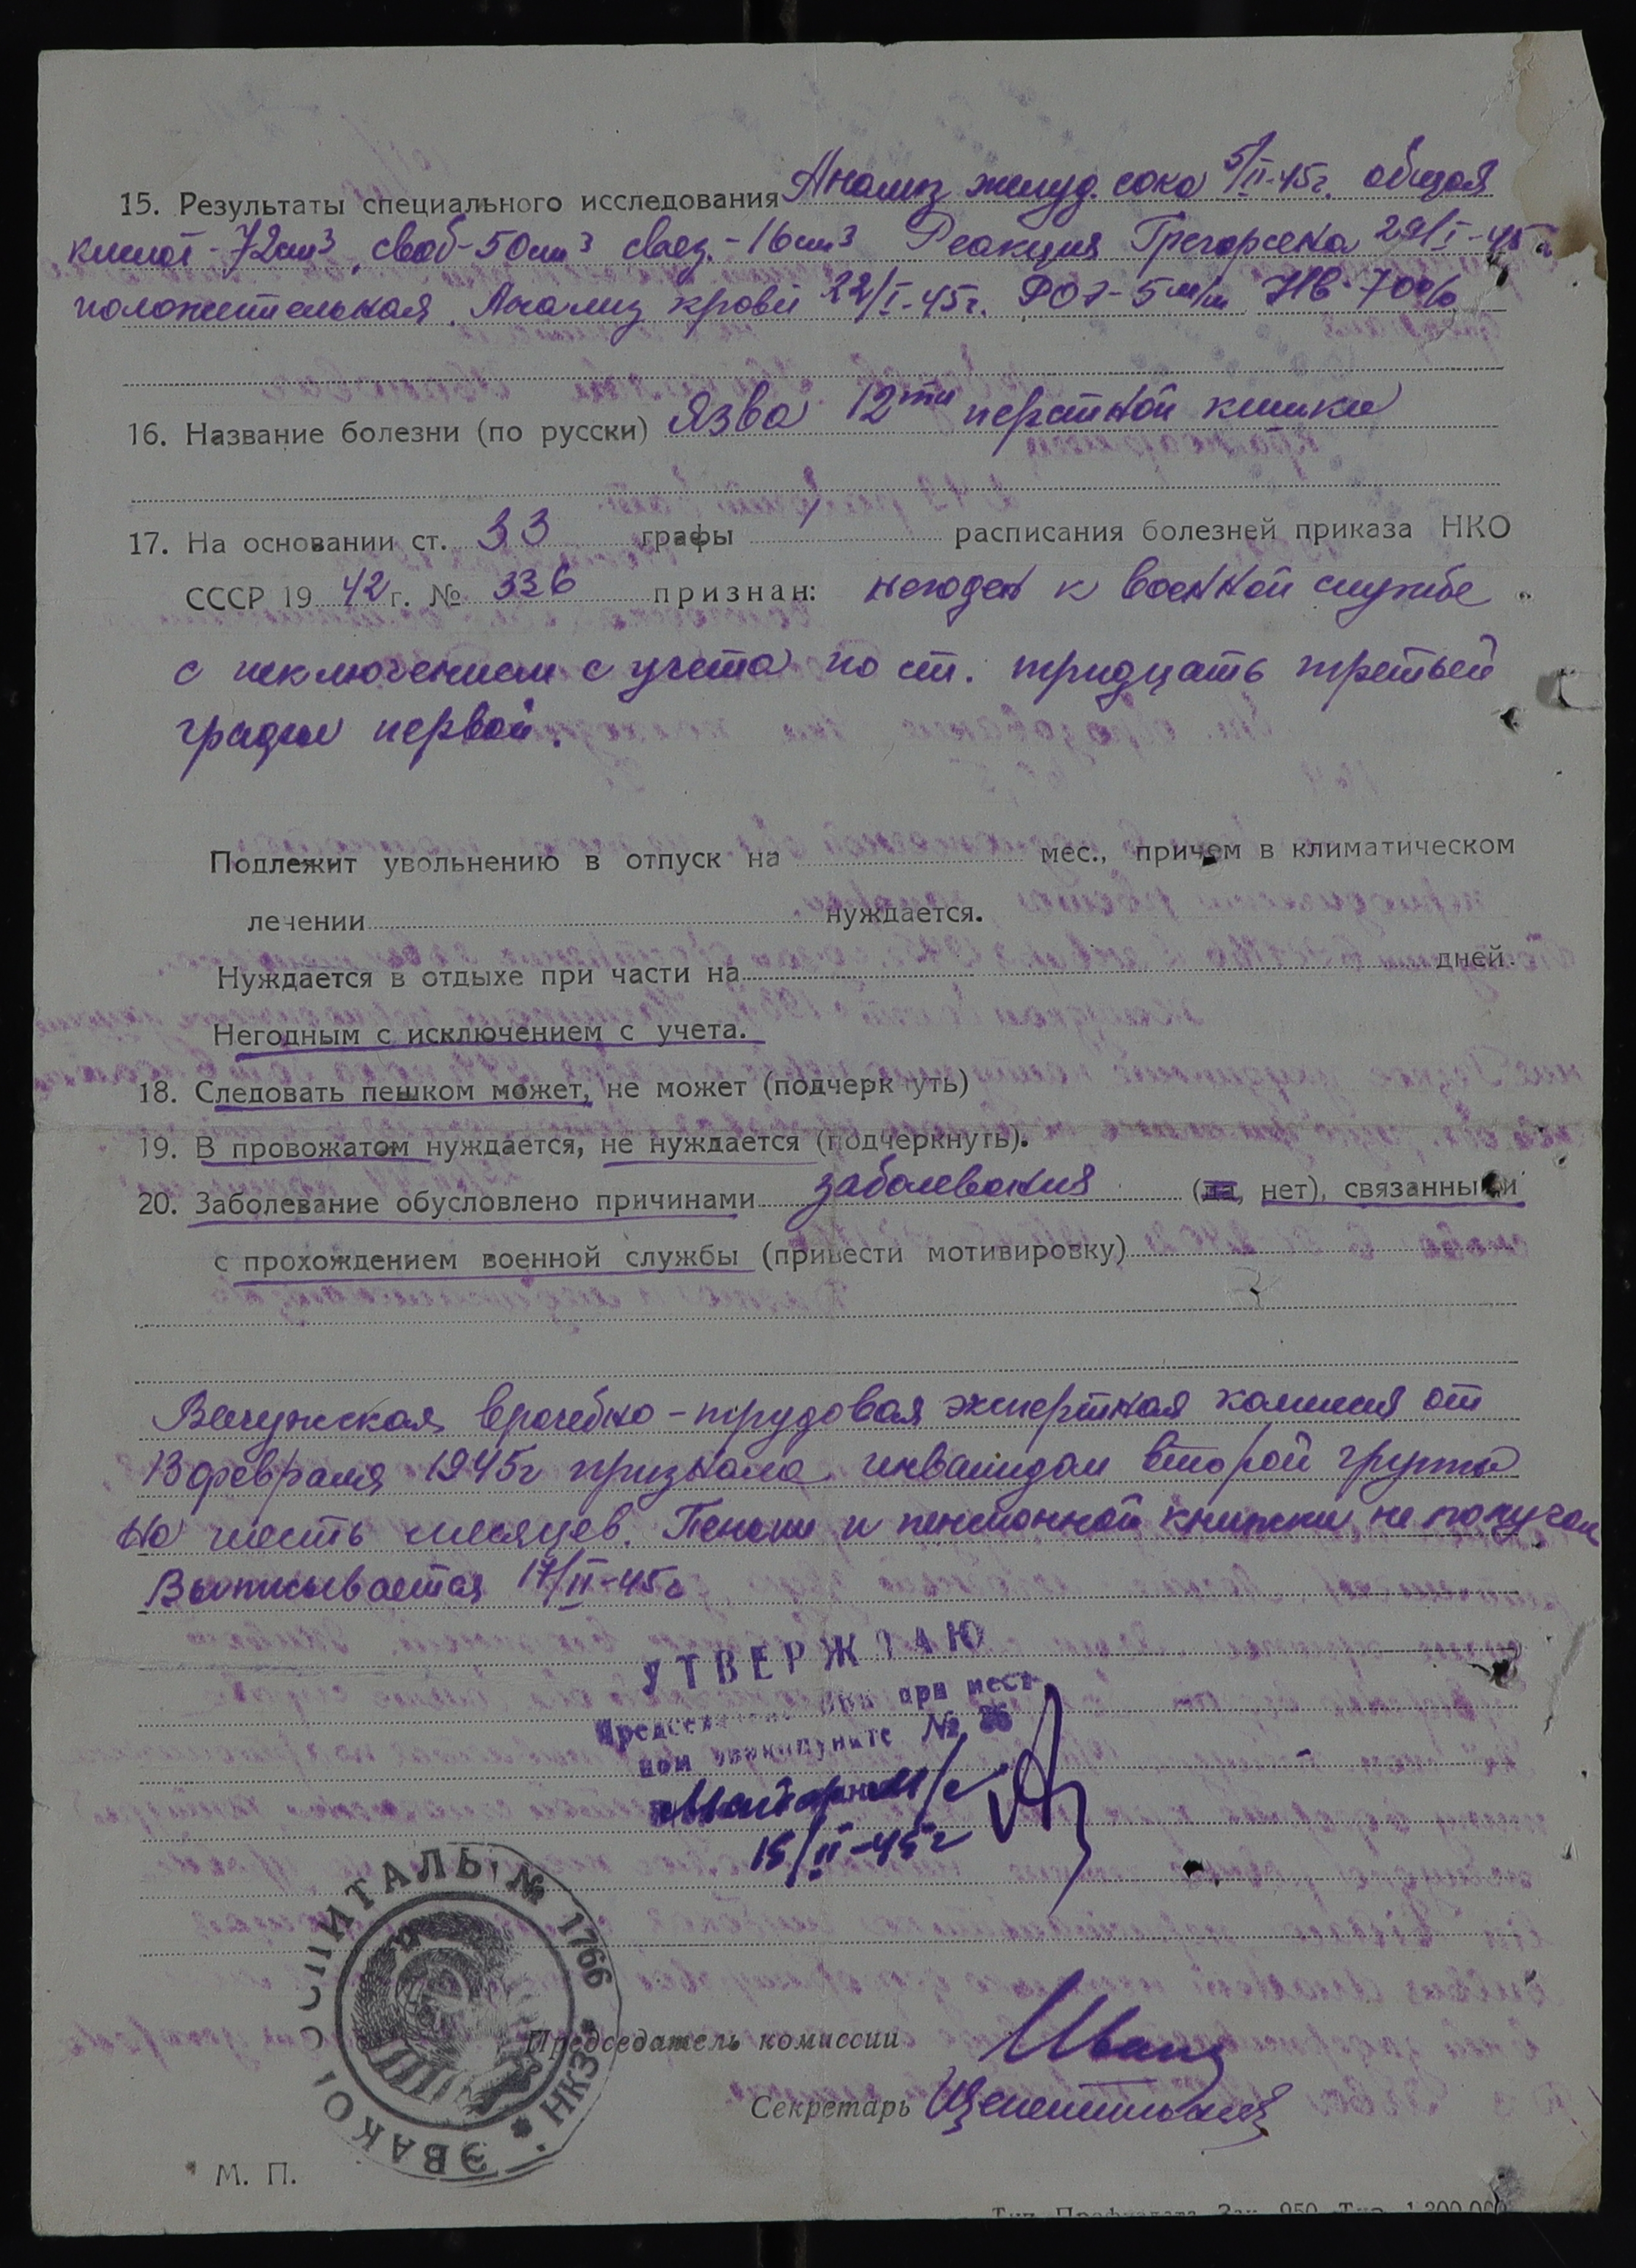 15. Результаты специального исследования Анализ желуд. сока 5/II-45г. общая
кислот - 72cm³, своб - 50cm³ связ. - 16cm³ Реакция Грегерсена 29/I-45г.
положительная. Анализ крови 22/I-45г. РОЭ - 5 m/m Нв - 70%
16. Название болезни (по русски) Язва 12ти перстной кишки
17. На основании ст. 33 графы I расписания болезней приказа НКО
СССР 1942 г. № 336 признан: негоден к военной службе
с исключением с учета по ст. тридцать третьей
графы первой.
Подлежит увольнению в отпуск на мес., причем в климатическом
лечении нуждается.
Нуждается в отдыхе при части на дней.
Негодным с исключением с учета.
18. Следовать пешком может, не может (подчеркнуть)
19. В провожатом нуждается, не нуждается (подчеркнуть).
20. Заболевание обусловлено причинами заболевания (да, нет), связанными
с прохождением военной службы (привести мотивировку)
врачебно-трудовая экспертная комисия от
13 февраля 1945г признала инвалидом второй группы
на шесть месяцев. Пенсии и пенсионной книжки не получал
Выписывается 17/II-45г
УТВЕРЖДАЮ
при мест-
ном эвакопункте №
15/II-45г
ЭВАКОГОСПИТАЛЬ № 1766 * НКЗ *
Председатель комиссии
Секретарь
М. П.
Тип. Профиздата. Зак. 950. Тир. 1.200.000